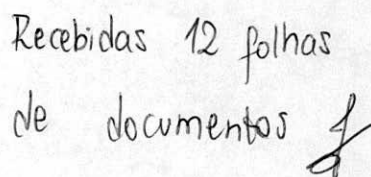 Recebidas 12 folhas
de documentos